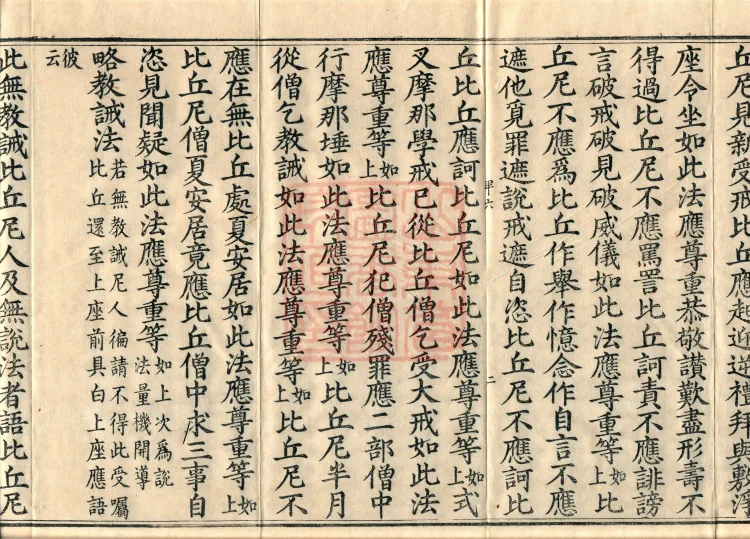 丘尼見新受戒比丘應起迎逆禮拜與敷淨
座令坐如此法應尊重恭敬讚歎盡形壽不
得過比丘尼不應罵詈比丘訶責不應誹謗
言破戒破見破威儀如此法應尊重等如上比
丘尼不應爲比丘作舉作憶念作自言不應
遮他覓罪遮說戒遮自恣比丘尼不應訶比
甲六
二
丘比丘應訶比丘尼如此法應尊重等如上式
叉摩那學戒已從比丘僧乞受大戒如此法
應尊重等如上比丘尼犯僧殘罪應二部僧中
行摩那埵如此法應尊重等如上比丘尼半月
從僧乞教誡如此法應尊重等如上比丘尼不
應在無比丘處夏安居如此法應尊重等如上
比丘尼僧夏安居竟應比丘僧中求三事自
恣見聞疑如此法應尊重等如上次爲說
法量機開導
略教誡法若無教誡尼人徧請不得此受囑
比丘還至上座前具白上座應語
彼云
此無教誡比丘尼人及無說法者語比丘尼